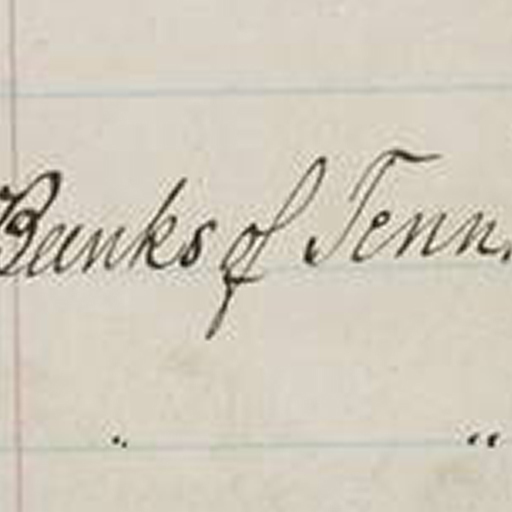 Banks of Tenn.
" "